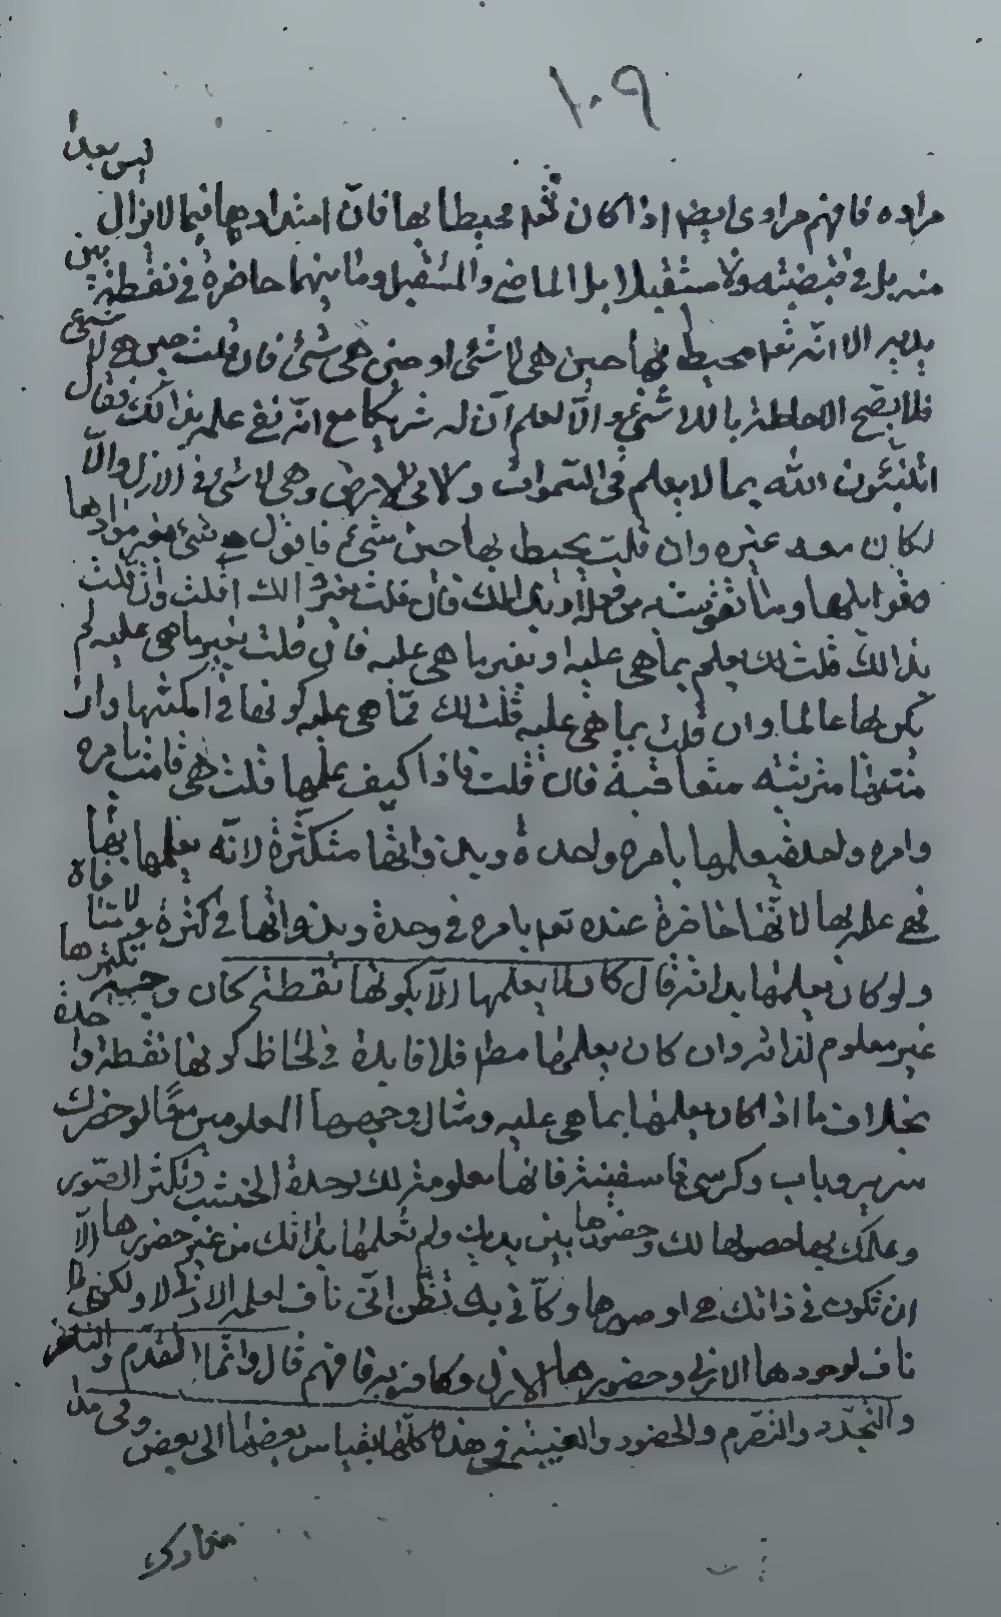 ١٠٩
مراده فافهم مرادى ايضا اذا كان تعه محيطا بها فان امتدادها فيما لا يزال ليس بعدا
منه بل فى قبضته ولا مستقبلا بل الماضى والمستقبل وما بينهما حاضرة فى نقطة بين
يديه الا انه تعه محيط بها حين هى لا شئ او حين هى شئ فان قلت حين هى لا شئ
فلا يصح الاحاطة باللا شئ والا لعلم ان له شريكا مع انه نفى علمه بذالك فقال
اتنبئون الله بما لا يعلم فى السموات ولا فى الارض وهى لا شئ فى الازل والا
لكان معه غيره وان قلت يحيط بها حين هى شئ فاقول هى شئ بغير موادها
وقوابلها وما تقومت به من فعله او بذالك فان قلت بغير ذالك وان قلت
بذالك قلت لك يعلم بما هى عليه او بغير ما هى عليه فان قلت بغير ما هى عليه لم
يكن بها عالما وان قلت بما هى عليه قلت لك مما هى عليه كونها فى امكنتها وان
منها مترتبة متعاقبة فان قلت فاذا كيف علمها قلت هى قامت بامره
وامره واحد فيعلمها بامره واحدة وبذواتها متكثرة لانه يعلمها بها
فهى علمه بها لانها حاضرة عنده تعه بامره فى وحدة وبذواتها فى كثرة ولا متنا فاة
ولو كان يعلمها بذاته قال كان لا يعلمها الا بكونها نقطة كان وجه تكثرها
غير معلوم لذاته وان كان يعلمها مط فلا فايدة فى لحاظ كونها نقطة واحدة
بخلاف ما اذا كان يعلمها بما هى عليه ومثال وجهيها المعلومين معا لو حضرك
سرير وباب وكرسى فا سفينة فانها معلومة لك بوحدة الخشب وتكثر الصور
وعلمك بها حصولها لك وحضورها بين يديك ولم تعلمها بذاتك من غير حضورها الا
ان تكون فى ذاتك هى او صورها وكانى بك تظن انى ناف لعلمه الازلى لا ولكنى
ناف لوجودها الازلى وحضورها الازل وكا فز به فافهم قال وانما التقدم والتاخر
والتجدد والتصرم والحضور والغيبة فى هذه كلها بقياس بعضها الى بعض وفى مدا